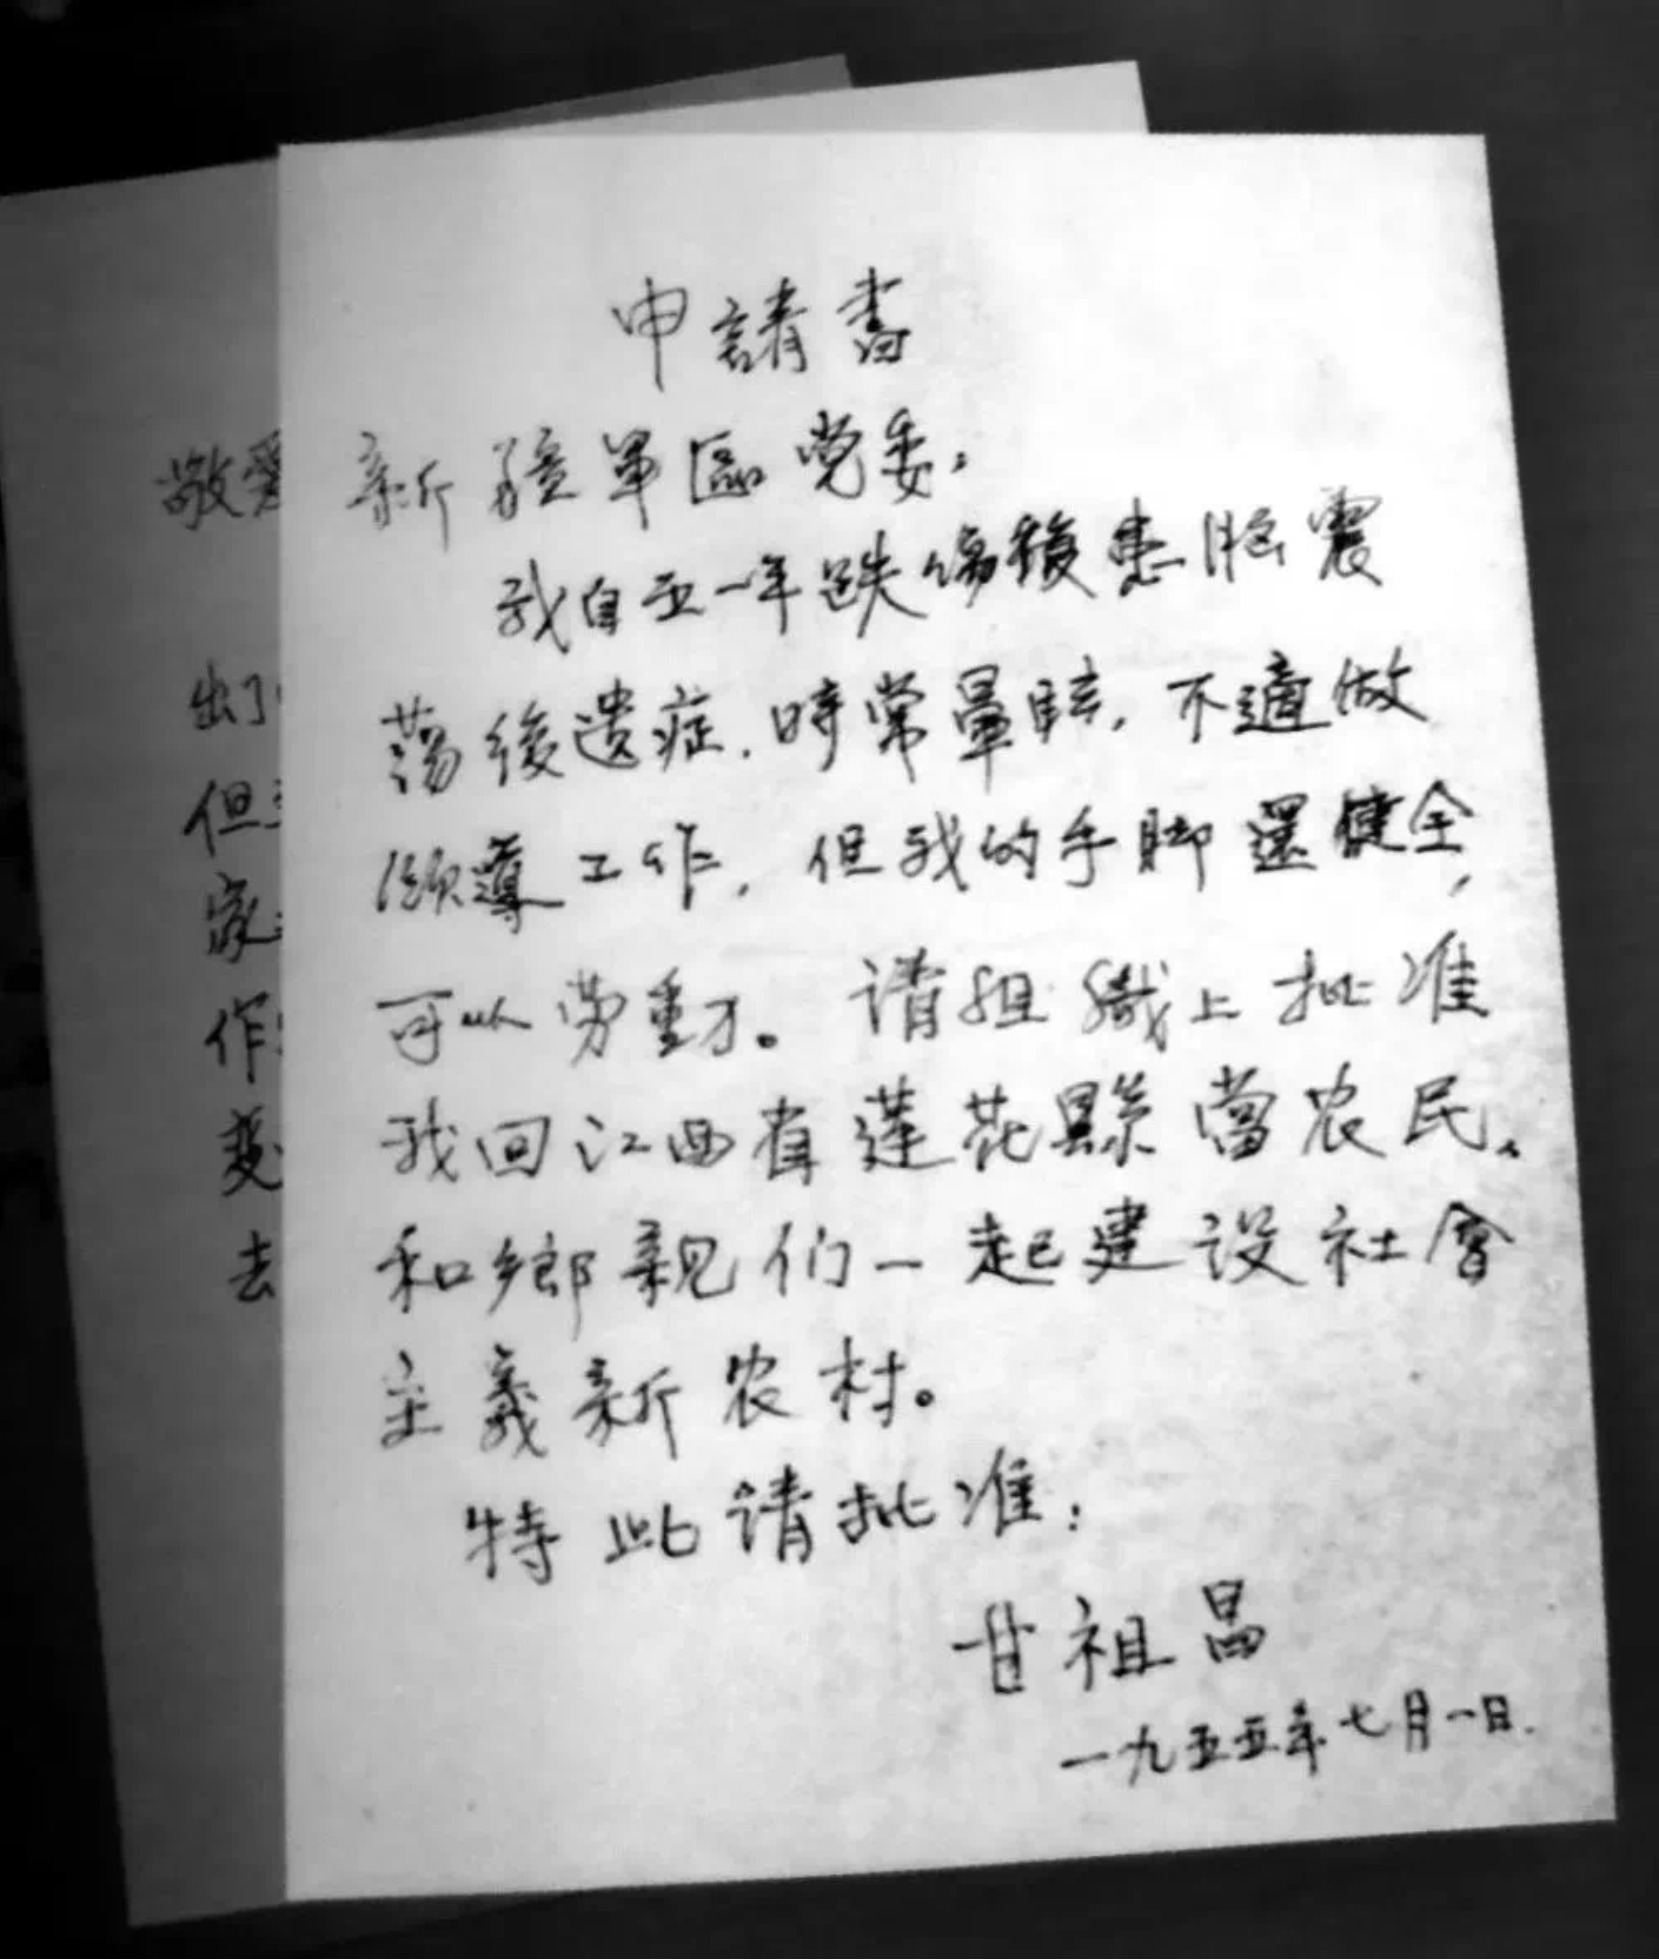 申請書
新疆軍區党委:
我自五一年跌傷後患脑震
荡後遗症.時常暈眩,不適做
领導工作,但我的手脚還健全,
可以劳動。请组織上批准
我回江西省莲花縣當农民、
和鄉親们一起建设社會
主義新农村。
特此请批准:
甘祖昌
一九五五年七月一日.
敬爱
出了
但
家
作
变
去